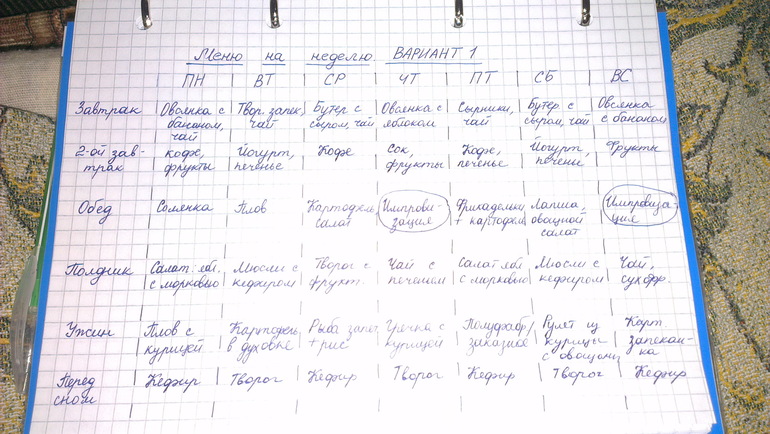 Меню на неделю. ВАРИАНТ 1
ПН ВТ СР ЧТ ПТ СБ ВС
Завтрак Овсянка с Твор. запек, Бутер с Овсянка с Сырники, Бутер с Овсянка
бананом, чай сыром, чай яблоком чай сыром, чай с бананом
чай
2-ой зав- кофе, Йогурт, Кофе Сок, Кофе, Йогурт, Фрукты
трак фрукты печенье фрукты печенье печенье
Обед Солянка Плов Картофель, Импрови- Фрикадельки Лапша, Импровиза-
салат зация + картофель овощной ция
салат
Полдник Салат: ябл. Мюсли с Творог с Чай с Салат: ябл. Мюсли с Чай,
с морковью кефиром фрукт. печеньем с морковью кефиром сухофр.
Ужин Плов с Картофель Рыба запеч. Гречка с Полуфабр/ Рулет из Карт.
курицей в духовке + рис курицей заказное курицы запекан-
с овощами ка
Перед Кефир Творог Кефир Творог Кефир Творог Кефир
сном